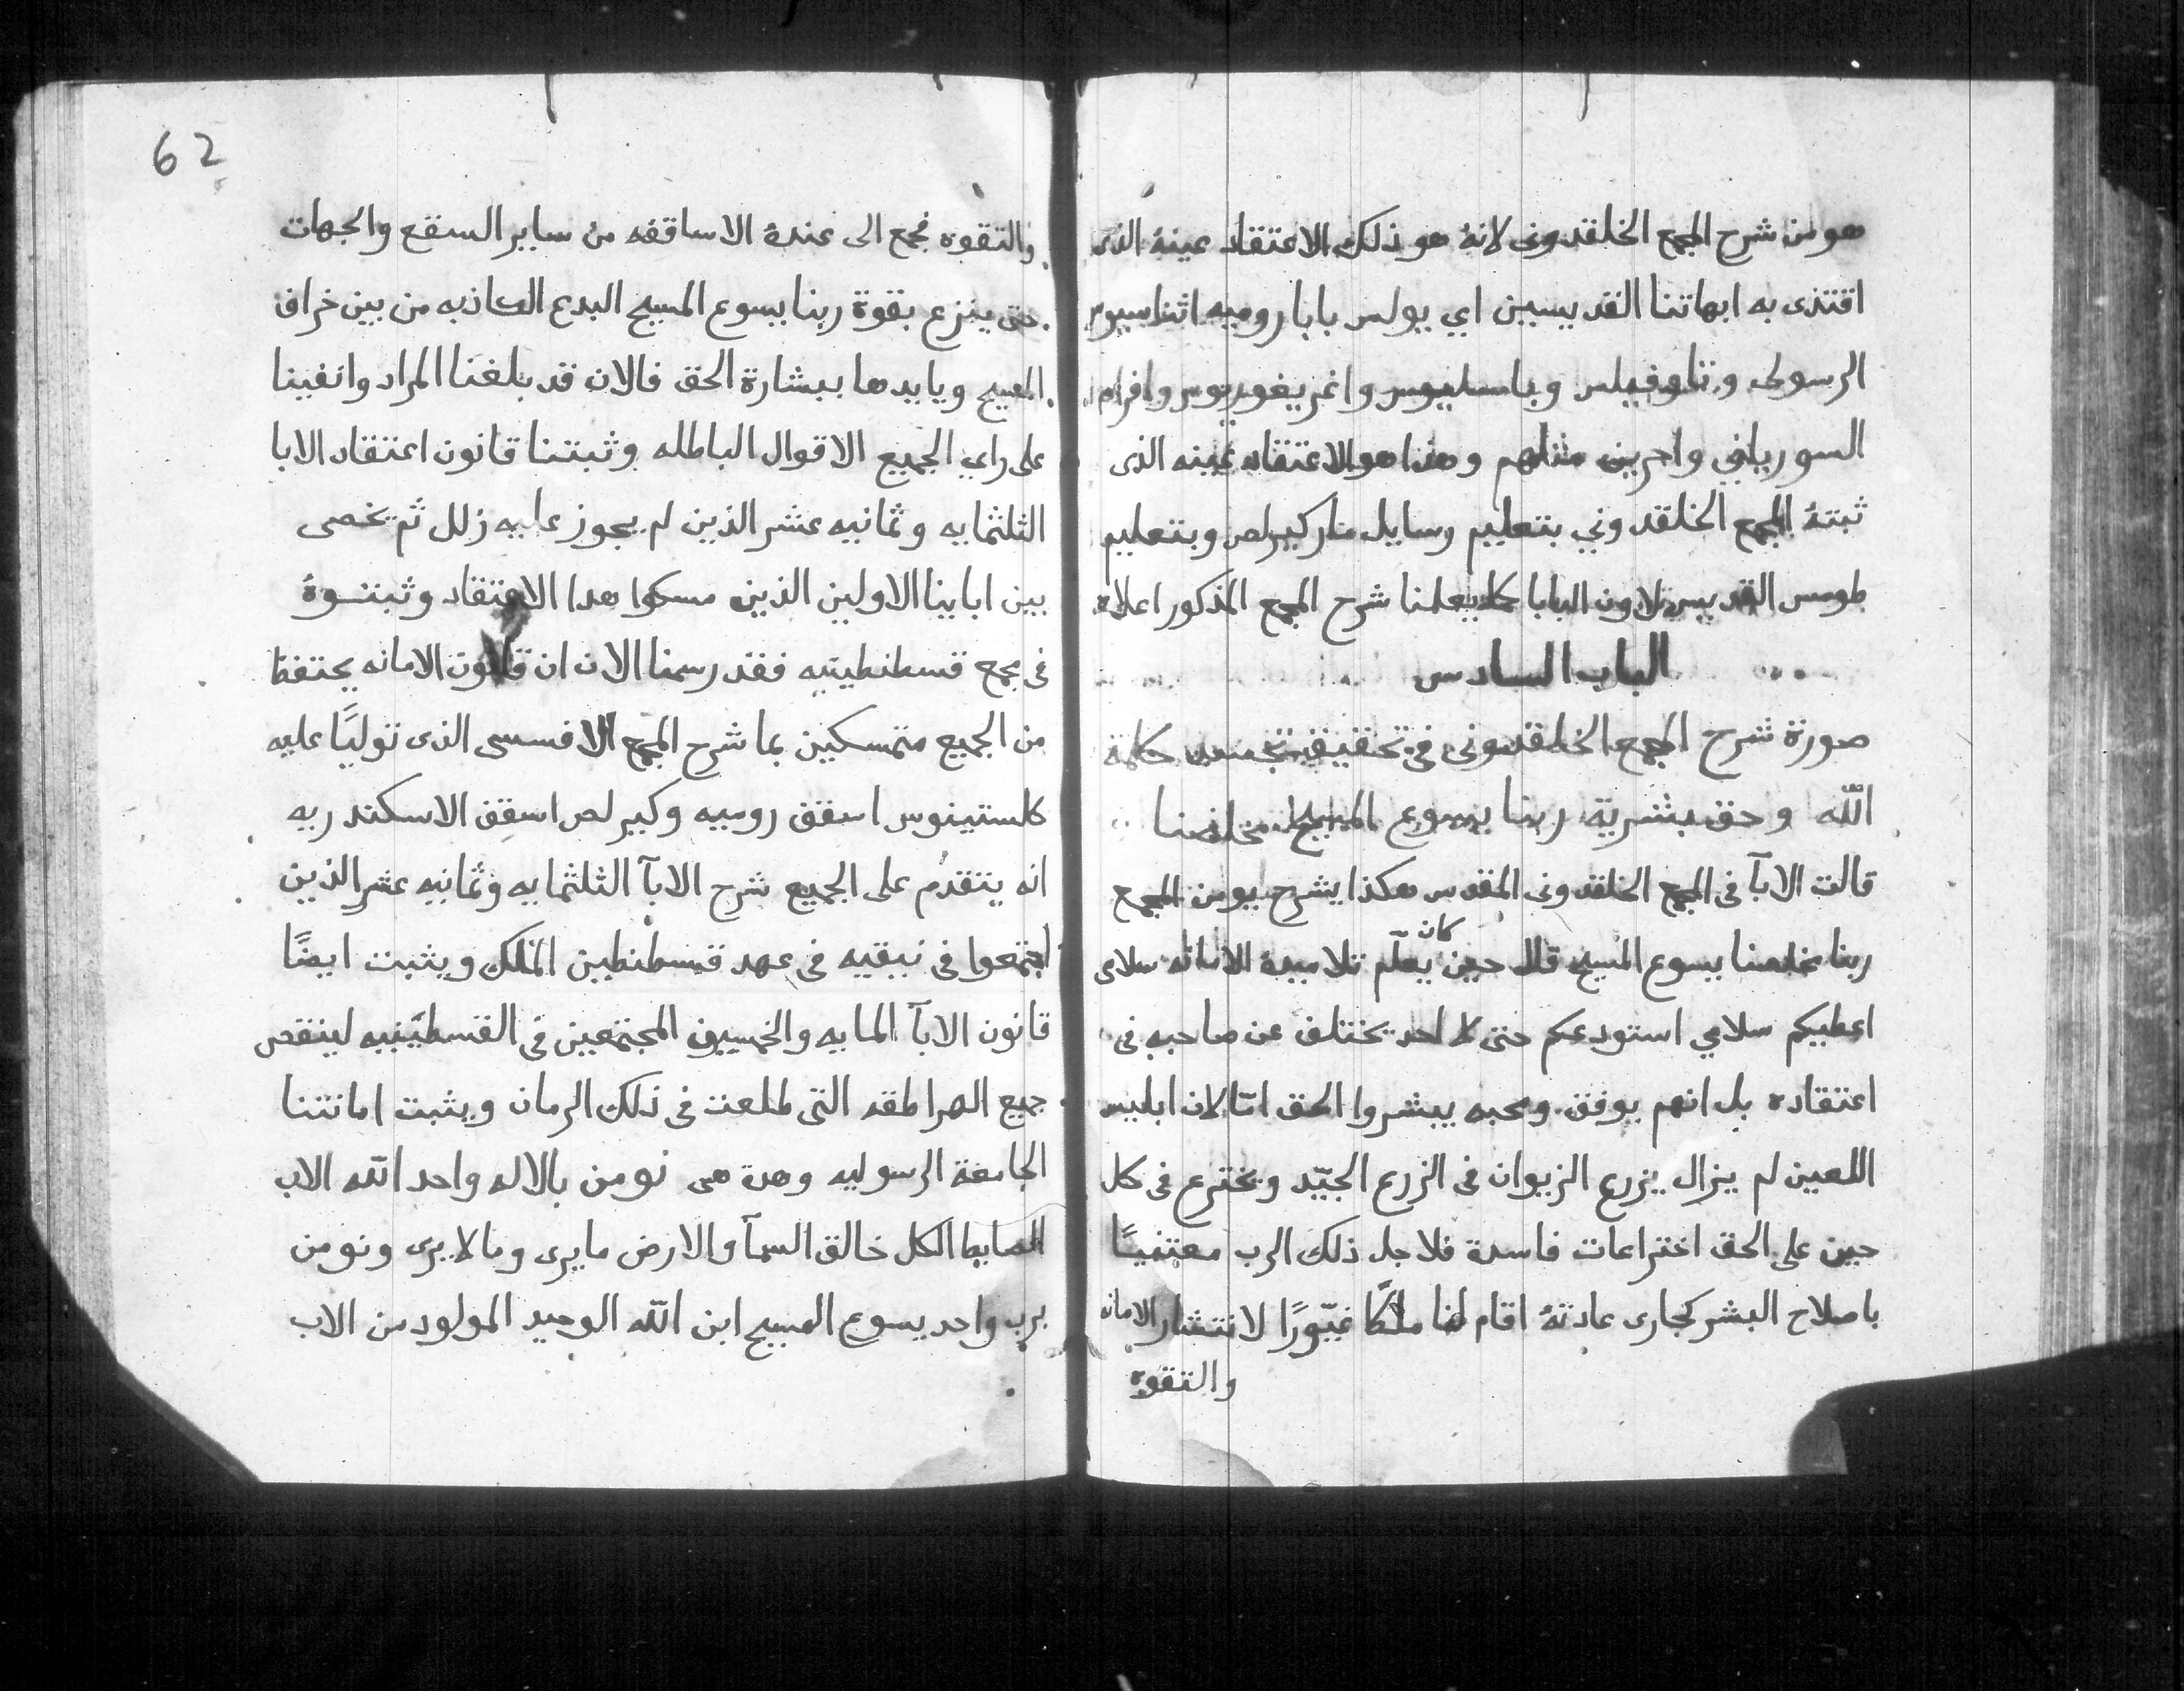 هو من شرح المجمع الخلقدوني لانهُ هو ذلك الاعتقاد عينهُ الذى
اقتدى به ابهاتنا القديسين اي يولس بابا روميه اثناسيوس
الرسولى وتاوفيلس وباسليوس واغريغوريوس وافرام
السورياني واخرين مثلهم وهذا هو الاعتقاد عينه الذى
ثبتهُ المجمع الخلقدوني بتعليم رسايل مار كيرلص وبتعليم
طومس القديس لاون البابا كما يعلمنا شرح المجمع المذكور اعلاه
الباب السادس
صورة شرح المجمع الخلقدونى فى تحقيق تجسد كلمة
الله وحق بشرية ربنا يسوع المسيح مخلصنا
قالت الابآ فى المجمع الخلقدونى المقدس هكذا يشرح يومن المجمع
ربنا مخلصنا يسوع المسيح قال حين كان يعلّم تلاميدهُ الامانه سلامى
اعطيكم سلامي استودعكم حتى لا احد يختلف عن صاحبه فى
اعتقاده بل انهم بوفق ومحبه يبشروا الحق امّا لان ابليس
اللعين لم يزال يزرع الزيوان فى الزرع الجيّد ويخترع فى كل
حين على الحق اختراعات فاسدة فلاجل ذلك الرب معتنيًا
باصلاح البشر كجارى عادتهُ اقام لنا ملكًا غيّورًا لانتشار الامانه
والتقوه
62
والتقوه فجمع الى عندهُ الاساقفه من ساير السقع والجهات
حتى ينزع بقوة ربنا يسوع المسيح البدع الكاذبه من بين خراف
المسيح ويايدها ببشارة الحق فالان قد بلغنا المراد وانفينا
على راي الجميع الاقوال الباطله وثبتنا قانون اعتقاد الابا
الثلثمايه وثمانيه عشر الذين لم يجوز عليه زلل ثم يخصى
بين ابايناالاولين الذين مسكوا هدا الاعتقاد وثبتوهُ
فى مجمع قسطنطينيه فقد رسمنا الان ان قانون الامانه يحتفظ
من الجميع متمسكين بما شرح المجمع الافسسى الذى توليًا عليه
كلستينوس اسقف روميه وكيرلص اسقف الاسكندريه
انه يتقدم على الجميع شرح الابآ الثلثمايه وثمانيه عشر الذين
اجتمعوا فى نيقيه فى عهد قسطنطين الملك ويثبت ايضًا
قانون الابآ المايه والخمسين المجتمعين فى القسطينيه لينقص
جميع الهراطقه التى طلعت فى ذلك الزمان ويثبت امانتنا
الجامعة الرسوليه وهدة هى نومن بالاله واحد الله الاب
الضابط الكل خالق السمآ والارض مايرى وما لا يرى ونومن
برب واحد يسوع المسيح ابن الله الوحيد المولود من الاب